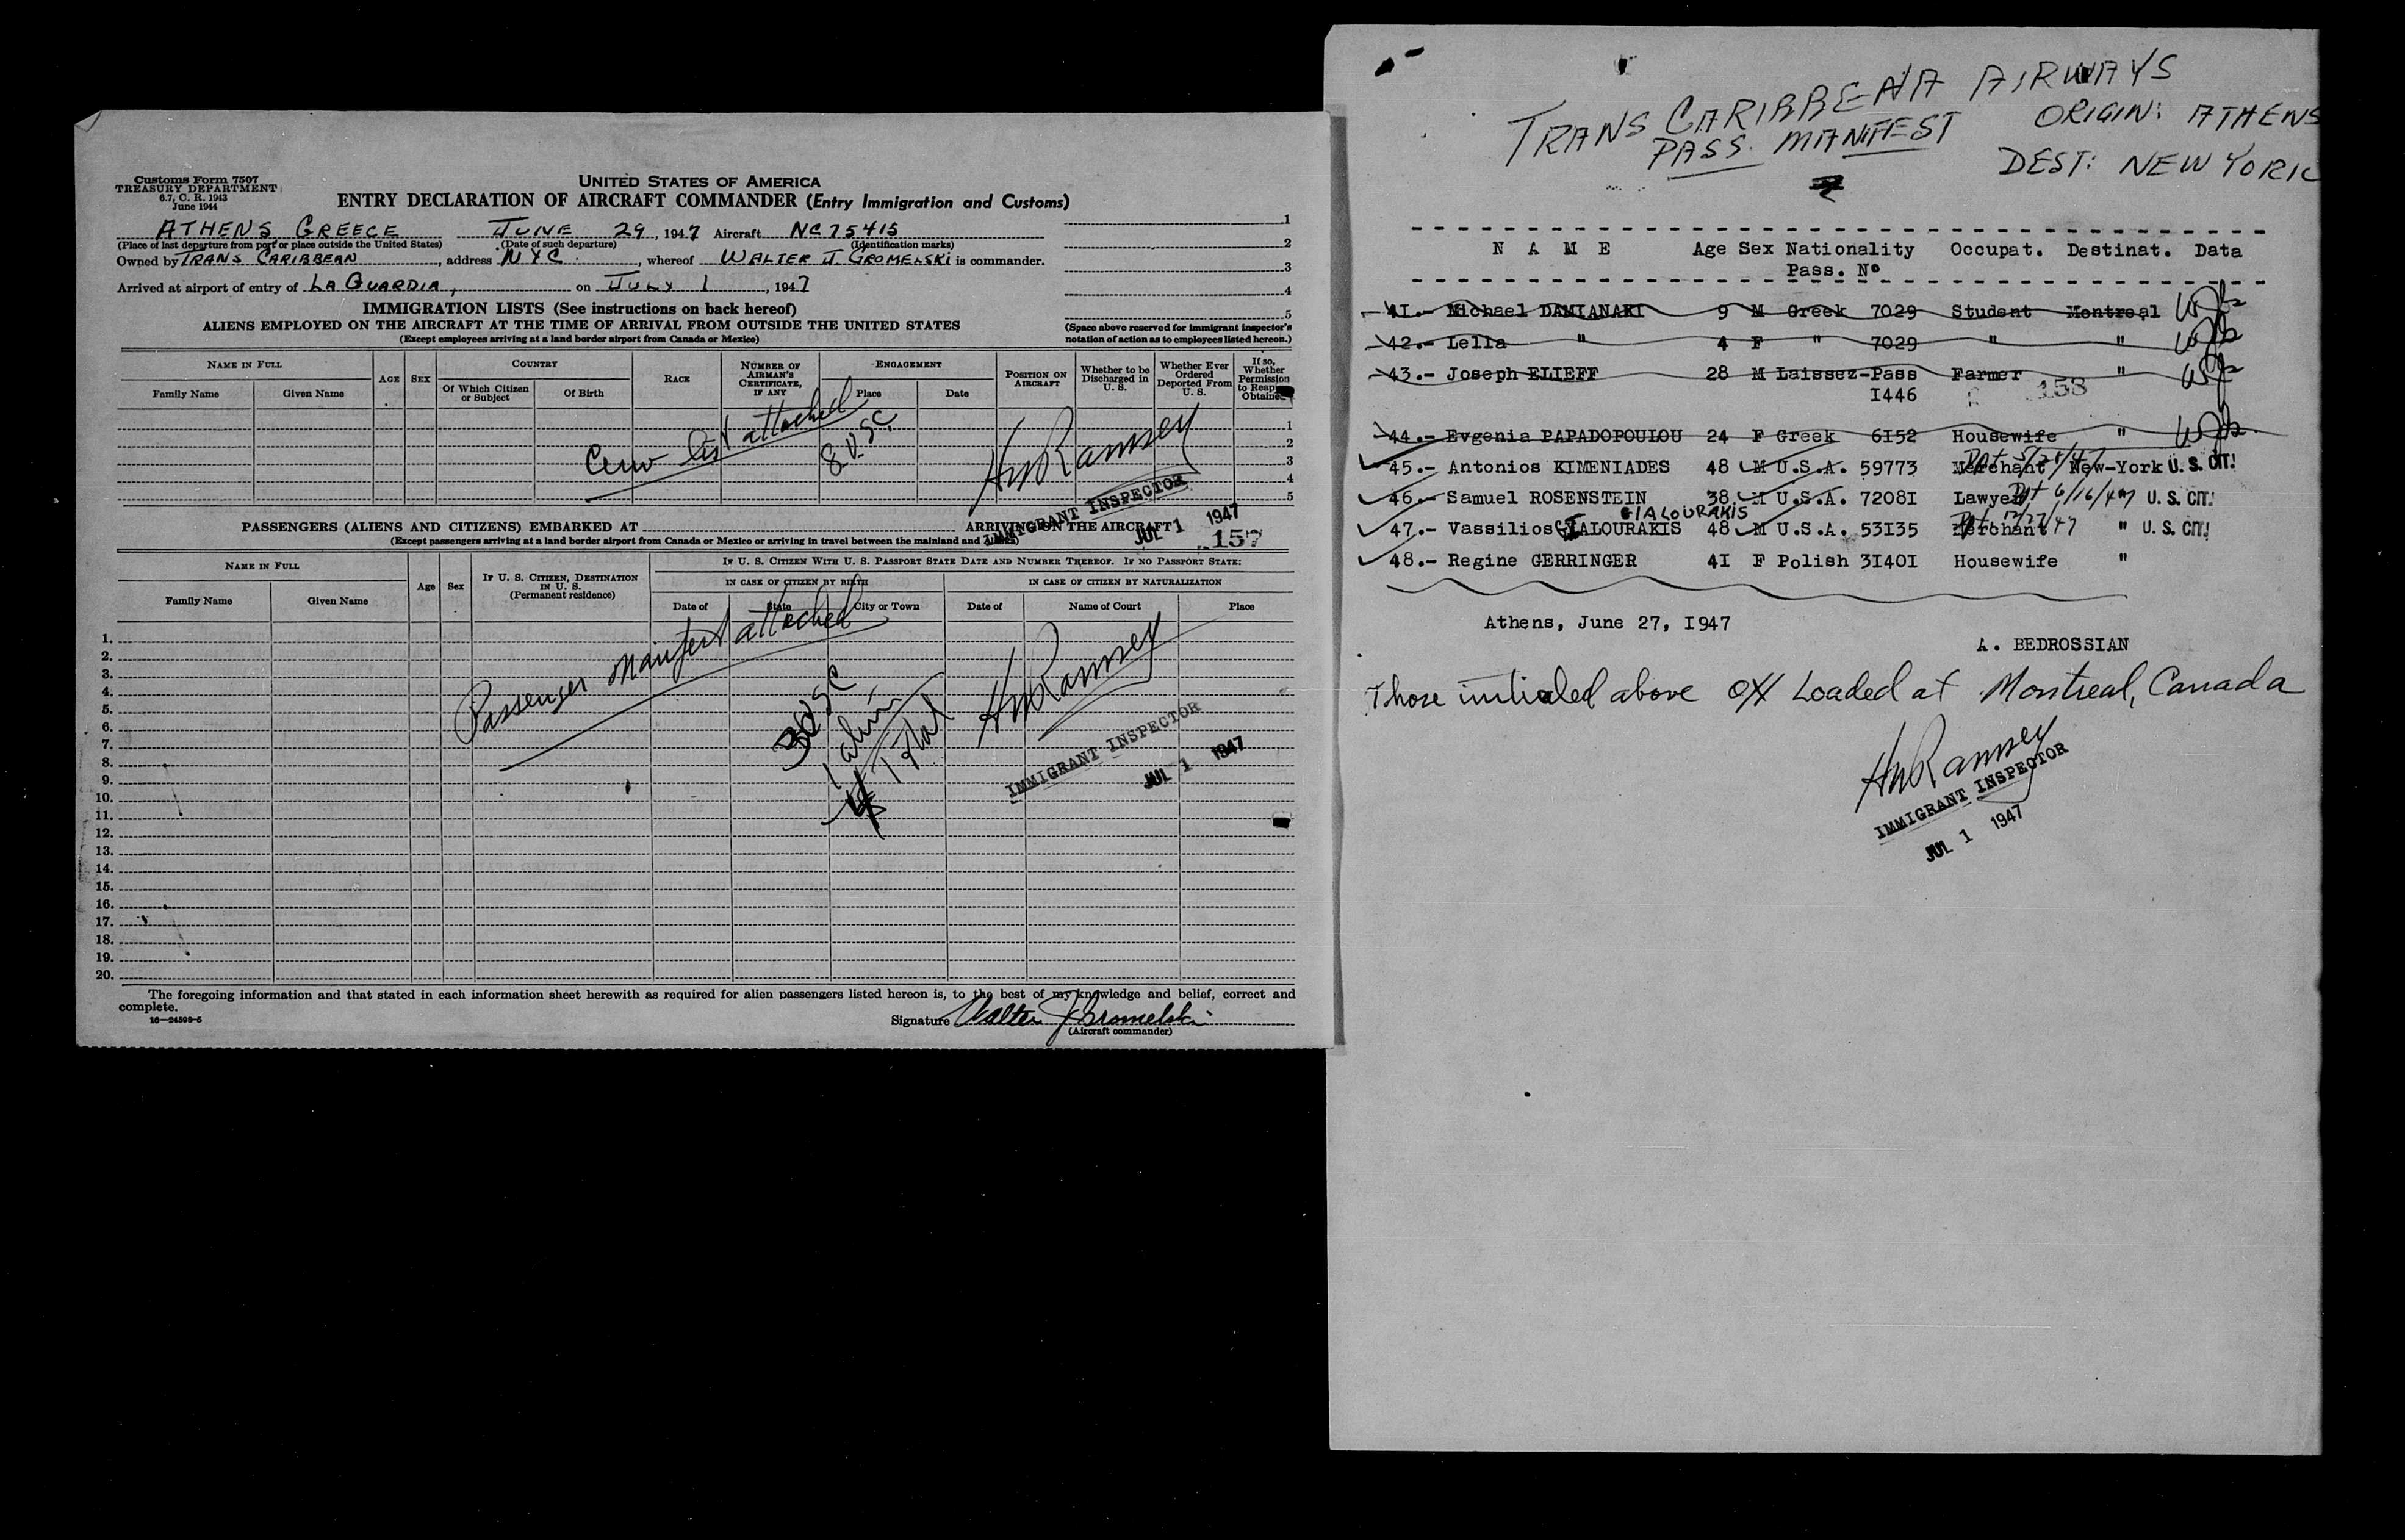 Customs Form 7507
TREASURY DEPARTMENT
6.7, C. R. 1943
June 1944
UNITED STATES OF AMERICA
ENTRY DECLARATION OF AIRCRAFT COMMANDER (Entry Immigration and Customs)
ATHENS GREECE JUNE 29, 1947 Aircraft NC75415
(Place of last departure from port or place outside the United States) (Date of such departure) (Identification marks)
Owned by TRANS CARIBBEAN, address NYC, whereof WALTER J. GROMELSKI is commander.
Arrived at airport of entry of LA GUARDIA, on JULY 1, 1947
1
2
3
4
5
(Space above reserved for immigrant inspector's
notation of action as to employees listed hereon.)
IMMIGRATION LISTS (See instructions on back hereof)
ALIENS EMPLOYED ON THE AIRCRAFT AT THE TIME OF ARRIVAL FROM OUTSIDE THE UNITED STATES
(Except employees arriving at a land border airport from Canada or Mexico)
NAME IN FULL
Family Name
Given Name
AGE
SEX
COUNTRY
Of Which Citizen or Subject
Of Birth
RACE
NUMBER OF AIRMAN'S CERTIFICATE, IF ANY
ENGAGEMENT
Place
Date
POSITION ON AIRCRAFT
Whether to be Discharged in U. S.
Whether Ever Ordered Deported From U. S.
If so, Whether Permission to Reapply Obtained
1
2
3
4
5
Crew list attached
8 USC
HWRamsey
IMMIGRANT INSPECTOR
JUL 1 1947
157
PASSENGERS (ALIENS AND CITIZENS) EMBARKED AT ARRIVING ON THE AIRCRAFT
(Except passengers arriving at a land border airport from Canada or Mexico or arriving in travel between the mainland and
NAME IN FULL
Family Name
Given Name
Age
Sex
IF U. S. CITIZEN, DESTINATION IN U. S.
(Permanent residence)
IF U. S. CITIZEN WITH U. S. PASSPORT STATE DATE AND NUMBER THEREOF. IF NO PASSPORT STATE:
IN CASE OF CITIZEN BY BIRTH
Date of
State
City or Town
IN CASE OF CITIZEN BY NATURALIZATION
Date of
Name of Court
Place
1.
2.
3.
4.
5.
6.
7.
8.
9.
10.
11.
12.
13.
14.
15.
16.
17.
18.
19.
20.
Passenger Manifest attached
3 USC
1 alien
4 Total
HWRamsey
IMMIGRANT INSPECTOR
JUL 1 1947
The foregoing information and that stated in each information sheet herewith as required for alien passengers listed hereon is, to the best of my knowledge and belief, correct and
complete.
16—24598-5
Signature Walter J Gromelski
(Aircraft commander)
TRANS CARIBBEAN AIRWAYS
PASS. MANIFEST
ORIGIN: ATHENS
DEST: NEW YORK
N A M E Age Sex Nationality Occupat. Destinat. Data
Pass. Nº
41.- Michael DAMIANAKI 9 M Greek 7029 Student Montreal
42.- Lella " 4 F " 7029 " "
43.- Joseph ELIEFF 28 M Laissez-Pass Farmer "
I446
158
44.- Evgenia PAPADOPOULOU 24 F Greek 6I52 Housewife "
45.- Antonios KIMENIADES 48 M U.S.A. 59773 Merchant New-York U. S. CIT!
46.- Samuel ROSENSTEIN 38 M U.S.A. 7208I Lawyer 6/16/47 U. S. CIT!
GIALOURAKIS
47.- Vassilios GIALOURAKIS 48 M U.S.A. 53I35 Merchant " U. S. CIT!
48.- Regine GERRINGER 4I F Polish 3I40I Housewife "
Athens, June 27, I947
A. BEDROSSIAN
Those initialed above Off Loaded at Montreal, Canada
HWRamsey
IMMIGRANT INSPECTOR
JUL 1 1947